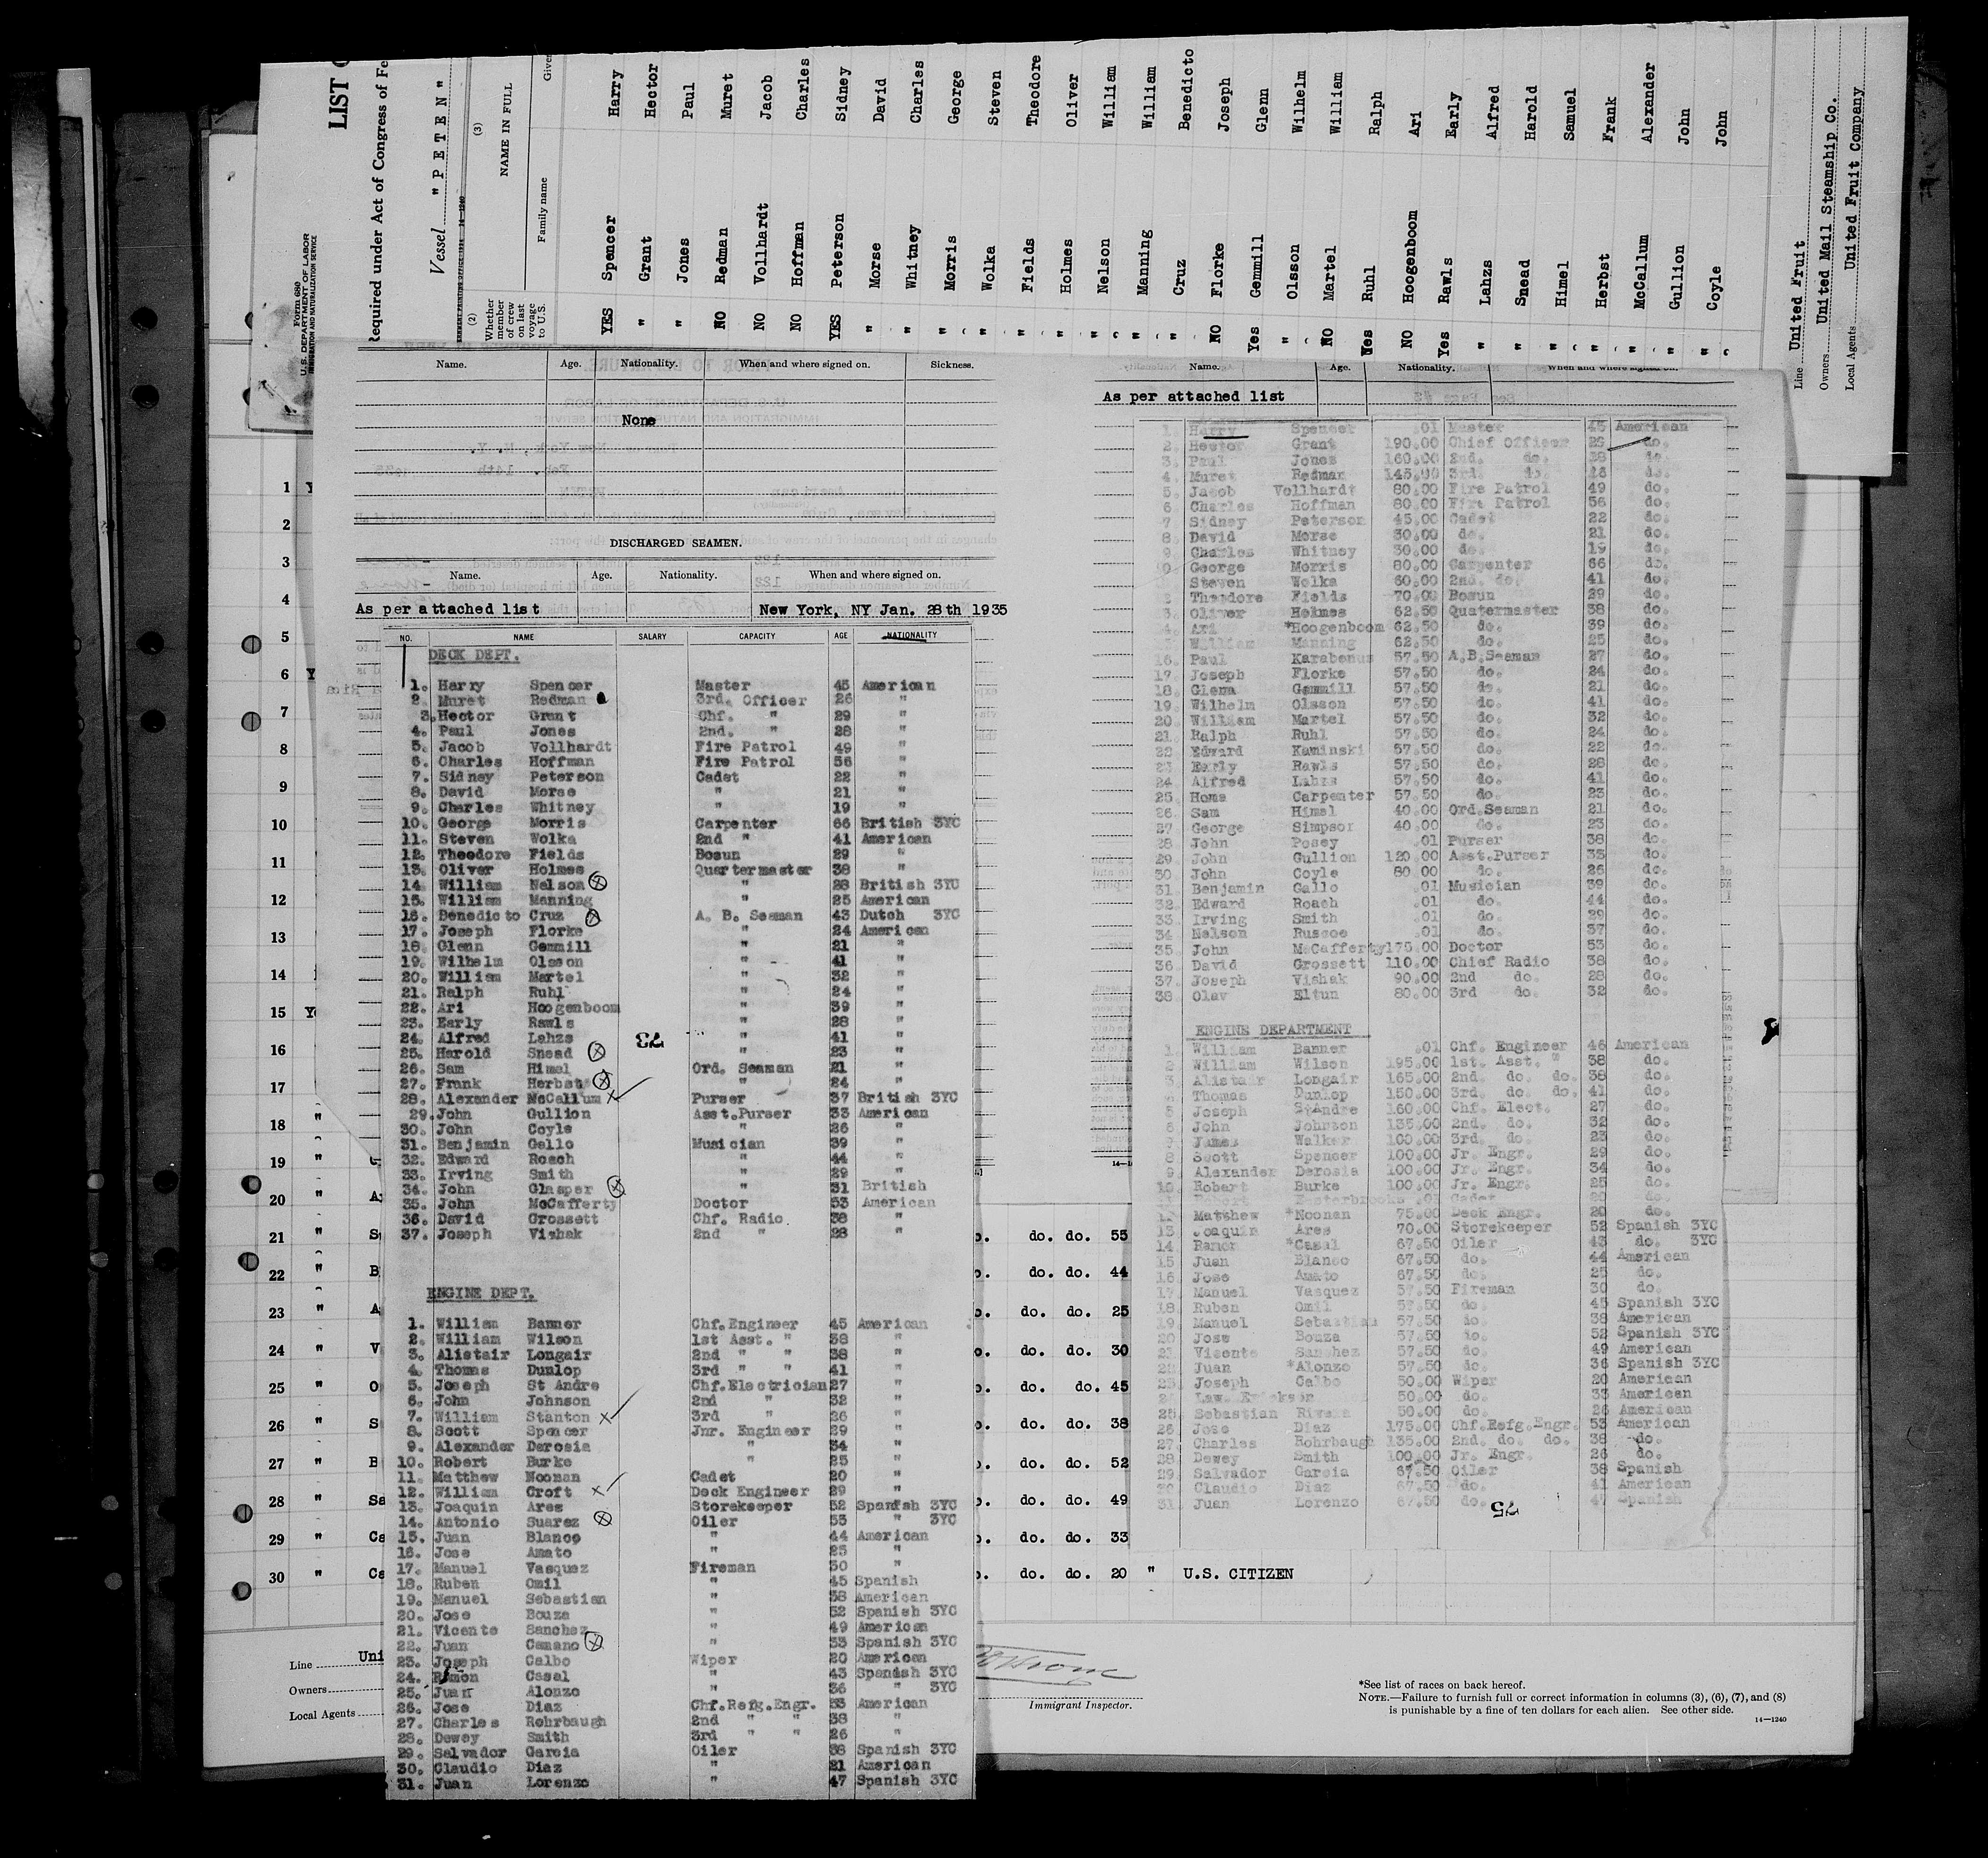 LIST
Required under Act of Congress of Fe
Form 680
U.S. DEPARTMENT OF LABOR
IMMIGRATION AND NATURALIZATION SERVICE
Vessel "PETEN"
(2) (3)
Whether member of crew on last voyage to U.S.
NAME IN FULL
Family name Give
YES Spencer Harry
" Grant Hector
" Jones Paul
NO Redman Muret
NO Vollhardt Jacob
NO Hoffman Charles
YES Peterson Sidney
" Morse David
" Whitney Charles
" Morris George
" Wolka Steven
" Fields Theodore
" Holmes Oliver
" Nelson William
" Manning William
" Cruz Benedicto
NO Florke Joseph
Yes Gemmill Glenn
" Olsson Wilhelm
NO Martel William
Yes Ruhl Ralph
NO Hoogenboom Ari
Yes Rawls Early
" Lahzs Alfred
" Snead Harold
" Himel Samuel
" Herbst Frank
" McCallum Alexander
" Gullion John
" Coyle John
Line United Fruit
Owners United Mail Steamship Co.
Local Agents United Fruit Company
Name. Age. Nationality. When and where signed on. Sickness.
None
DISCHARGED SEAMEN.
Name. Age. Nationality. When and where signed on.
As per attached list New York, NY Jan. 28th 1935
NO. NAME SALARY CAPACITY AGE NATIONALITY
DECK DEPT.
1. Harry Spencer Master 45 American
2. Muret Redman 3rd. Officer 26 "
3. Hector Grant Chf. " 29 "
4. Paul Jones 2nd. " 28 "
5. Jacob Vollhardt Fire Patrol 49 "
6. Charles Hoffman Fire Patrol 56 "
7. Sidney Peterson Cadet 22 "
8. David Morse " 21 "
9. Charles Whitney " 19 "
10. George Morris Carpenter 66 British 3YC
11. Steven Wolka 2nd " 41 American
12. Theodore Fields Bosun 29 "
13. Oliver Holmes Quartermaster 38 "
14. William Nelson " 28 British 3YC
15. William Manning " 25 American
16. Benedicto Cruz A. B. Seaman 43 Dutch 3YC
17. Joseph Florke " 24 American
18. Glenn Gemmill " 21 "
19. Wilhelm Olsson " 41 "
20. William Martel " 32 "
21. Ralph Ruhl " 24 "
22. Ari Hoogenboom " 39 "
23. Early Rawls " 28 "
24. Alfred Lahzs " 41 "
25. Harold Snead " 23 "
26. Sam Himel Ord. Seaman 21 "
27. Frank Herbst " 24 "
28. Alexander McCallum Purser 37 British 3YC
29. John Gullion Asst.Purser 33 American
30. John Coyle " 26 "
31. Benjamin Gallo Musician 39 "
32. Edward Roach " 44 "
33. Irving Smith " 29 "
34. John Glasper " 31 British
35. John McCafferty Doctor 53 American
36. David Grossett Chf. Radio 38 "
37. Joseph Vishak 2nd " 28 "
73
ENGINE DEPT.
1. William Banner Chf.Engineer 45 American
2. William Wilson 1st Asst. " 38 "
3. Alistair Longair 2nd " " 38 "
4. Thomas Dunlop 3rd " " 41 "
5. Joseph St Andre Chf.Electrician 27 "
6. John Johnson 2nd " 32 "
7. William Stanton 3rd " 26 "
8. Scott Spencer Jnr. Engineer 29 "
9. Alexander Derosia " 34 "
10. Robert Burke " 25 "
11. Matthew Noonan Cadet 20 "
12. William Croft Deck Engineer 29 "
13. Joaquin Ares Storekeeper 52 Spanish 3YC
14. Antonio Suarez Oiler 53 " 3YC
15. Juan Blanco " 44 American
16. Jose Amato " 25 "
17. Manuel Vasquez Fireman 30 "
18. Ruben Omil " 45 Spanish
19. Manuel Sebastian " 38 American
20. Jose Bouza " 52 Spanish 3YC
21. Vicente Sanchez " 49 American
22. Juan Camano " 53 Spanish 3YC
23. Joseph Calbo Wiper 20 American
24. Ramon Casal " 43 Spanish 3YC
25. Juan Alonzo " 36 " 3YC
26. Jose Diaz Chf.Refg.Engr. 53 American
27. Charles Rohrbaugh 2nd " " 38 "
28. Dewey Smith 3rd " " 26 "
29. Salvador Garcia Oiler 38 Spanish 3YC
30. Claudio Diaz " 21 American
31. Juan Lorenzo " 47 Spanish 3YC
Name. Age. Nationality. When and where signed on.
As per attached list
1. Harry Spencer .01 Master 45 American
2. Hector Grant 190.00 Chief Officer 29 do.
3. Paul Jones 160.00 2nd. do. 38 do.
4. Muret Redman 145.00 3rd. do. 26 do.
5. Jacob Vollhardt 80.00 Fire Patrol 49 do.
6 Charles Hoffman 80.00 Fire Patrol 56 do.
7 Sidney Peterson 45.00 Cadet 22 do.
8. David Morse 30.00 do. 21 do.
9. Charles Whitney 30.00 do. 19 do.
10 George Morris 80.00 Carpenter 66 do.
Steven Wolka 60.00 2nd. do. 41 do.
Theodore Fields 70.00 Bosun 29 do.
3. Oliver Holmes 62.50 Quatermaster 38 do.
4. Ari *Hoogenboom 62.50 do. 39 do.
William Manning 62.50 do. 25 do.
16. Paul Karabenus 57.50 A.B.Seaman 27 do.
17. Joseph Florke 57.50 do. 24 do.
18. Glenn Gemmill 57.50 do. 21 do.
19. Wilhelm Olsson 57.50 do. 41 do.
20 William Martel 57.50 do. 32 do.
21. Ralph Ruhl 57.50 do. 24 do.
22 Edward Kaminski 57.50 do. 22 do.
23 Early Rawls 57.50 do. 28 do.
24 Alfred Lahzs 57.50 do. 41 do.
25. Home Carpenter 57.50 do. 23 do.
26. Sam Himel 40.00 Ord.Seaman 21 do.
27 George Simpson 40.00 do. 23 do.
28 John Posey .01 Purser 38 do.
29. John Gullion 120.00 Asst.Purser 33 do.
30 John Coyle 80 00 do. 26 do.
31 Benjamin Gallo .01 Musician 39 do.
32. Edward Roach .01 do. 44 do.
33. Irving Smith .01 do. 29 do.
34 Nelson Ruscoe .01 do. 37 do.
35 John McCafferty 175.00 Doctor 53 do.
36 David Grossett 110.00 Chief Radio 38 do.
37. Joseph Vishak 90.00 2nd do. 28 do.
38 Olav Eltun 80.00 3rd do. 32 do.
ENGINE DEPARTMENT
1. William Banner .01 Chf. Engineer 46 American
2 William Wilson 195.00 1st. Asst. " 38 do.
3 Alistair Longair 165.00 2nd. do. do. 38 do.
Thomas Dunlop 150.00 3rd. do. do. 41 do.
5 Joseph StAndre 160.00 Chf. Elect. 27 do.
6 John Johnson 135.00 2nd. do. 32 do.
7 James Walker 100.00 3rd. do. 23 do.
8 Scott Spencer 100.00 Jr. Engr. 29 do.
9 Alexander Derosia 100.00 Jr. Engr. 34 do.
10. Robert Burke 100.00 Jr. Engr. 25 do.
Easterbrooks .01 Cadet 20 do.
12 Matthew *Noonan 75.00 Deck Engr. 20 do.
13 Joaquin Ares 70.00 Storekeeper 52 Spanish 3YC
14 Ramon *Casal 67.50 Oiler 43 do. 3YC
15 Juan Blanco 67.50 do. 44 American
16 Jose Amato 67.50 do. 25 do.
17. Manuel Vasquez 57.50 Fireman 30 do.
18. Ruben Omil 57.50 do. 45 Spanish 3YC
19. Manuel Sebastian 57.50 do. 38 American
20 Jose Bouza 57.50 do. 52 Spanish 3YC
21 Vicente Sanchez 57.50 do. 49 American
22 Juan *Alonzo 57.50 do. 36 Spanish 3YC
23. Joseph Calbo 50.00 Wiper 20 American
24 Law. Erickson 50.00 do. 33 American
25. Sebastian Rivera 50.00 do. 26 American
26 Jose Diaz 175.00 Chf.Refg.Engr. 53 American
27. Charles Rohrbaugh 135.00 2nd. do. do. 38 do.
28 Dewey Smith 100.00 Jr. Engr. 26 do.
29. Salvador Garcia 67.50 Oiler 38 Spanish
30 Claudio Diaz 67.50 do. 41 American
31 Juan Lorenzo 67.50 do. 47 Spanish
75
1 Y
2
3
4
5
6 Y
7
8
9
10
11
12
13
14
15 Y
16
17
18 "
19 "
20 " A
21 " S do. do. 55
22 " B do. do. 44
23 " A do. do. 25
24 " V do. do. 30
25 " O do. do. 45
26 " S do. do. 38
27 " B do. do. 52
28 " Sa do. do. 49
29 " Ca do. do. 33
30 " Ca do. do. 20 " U.S. CITIZEN
Line Uni
Owners
Local Agents
Immigrant Inspector.
*See list of races on back hereof.
NOTE.—Failure to furnish full or correct information in columns (3), (6), (7), and (8)
is punishable by a fine of ten dollars for each alien. See other side.
14—1240